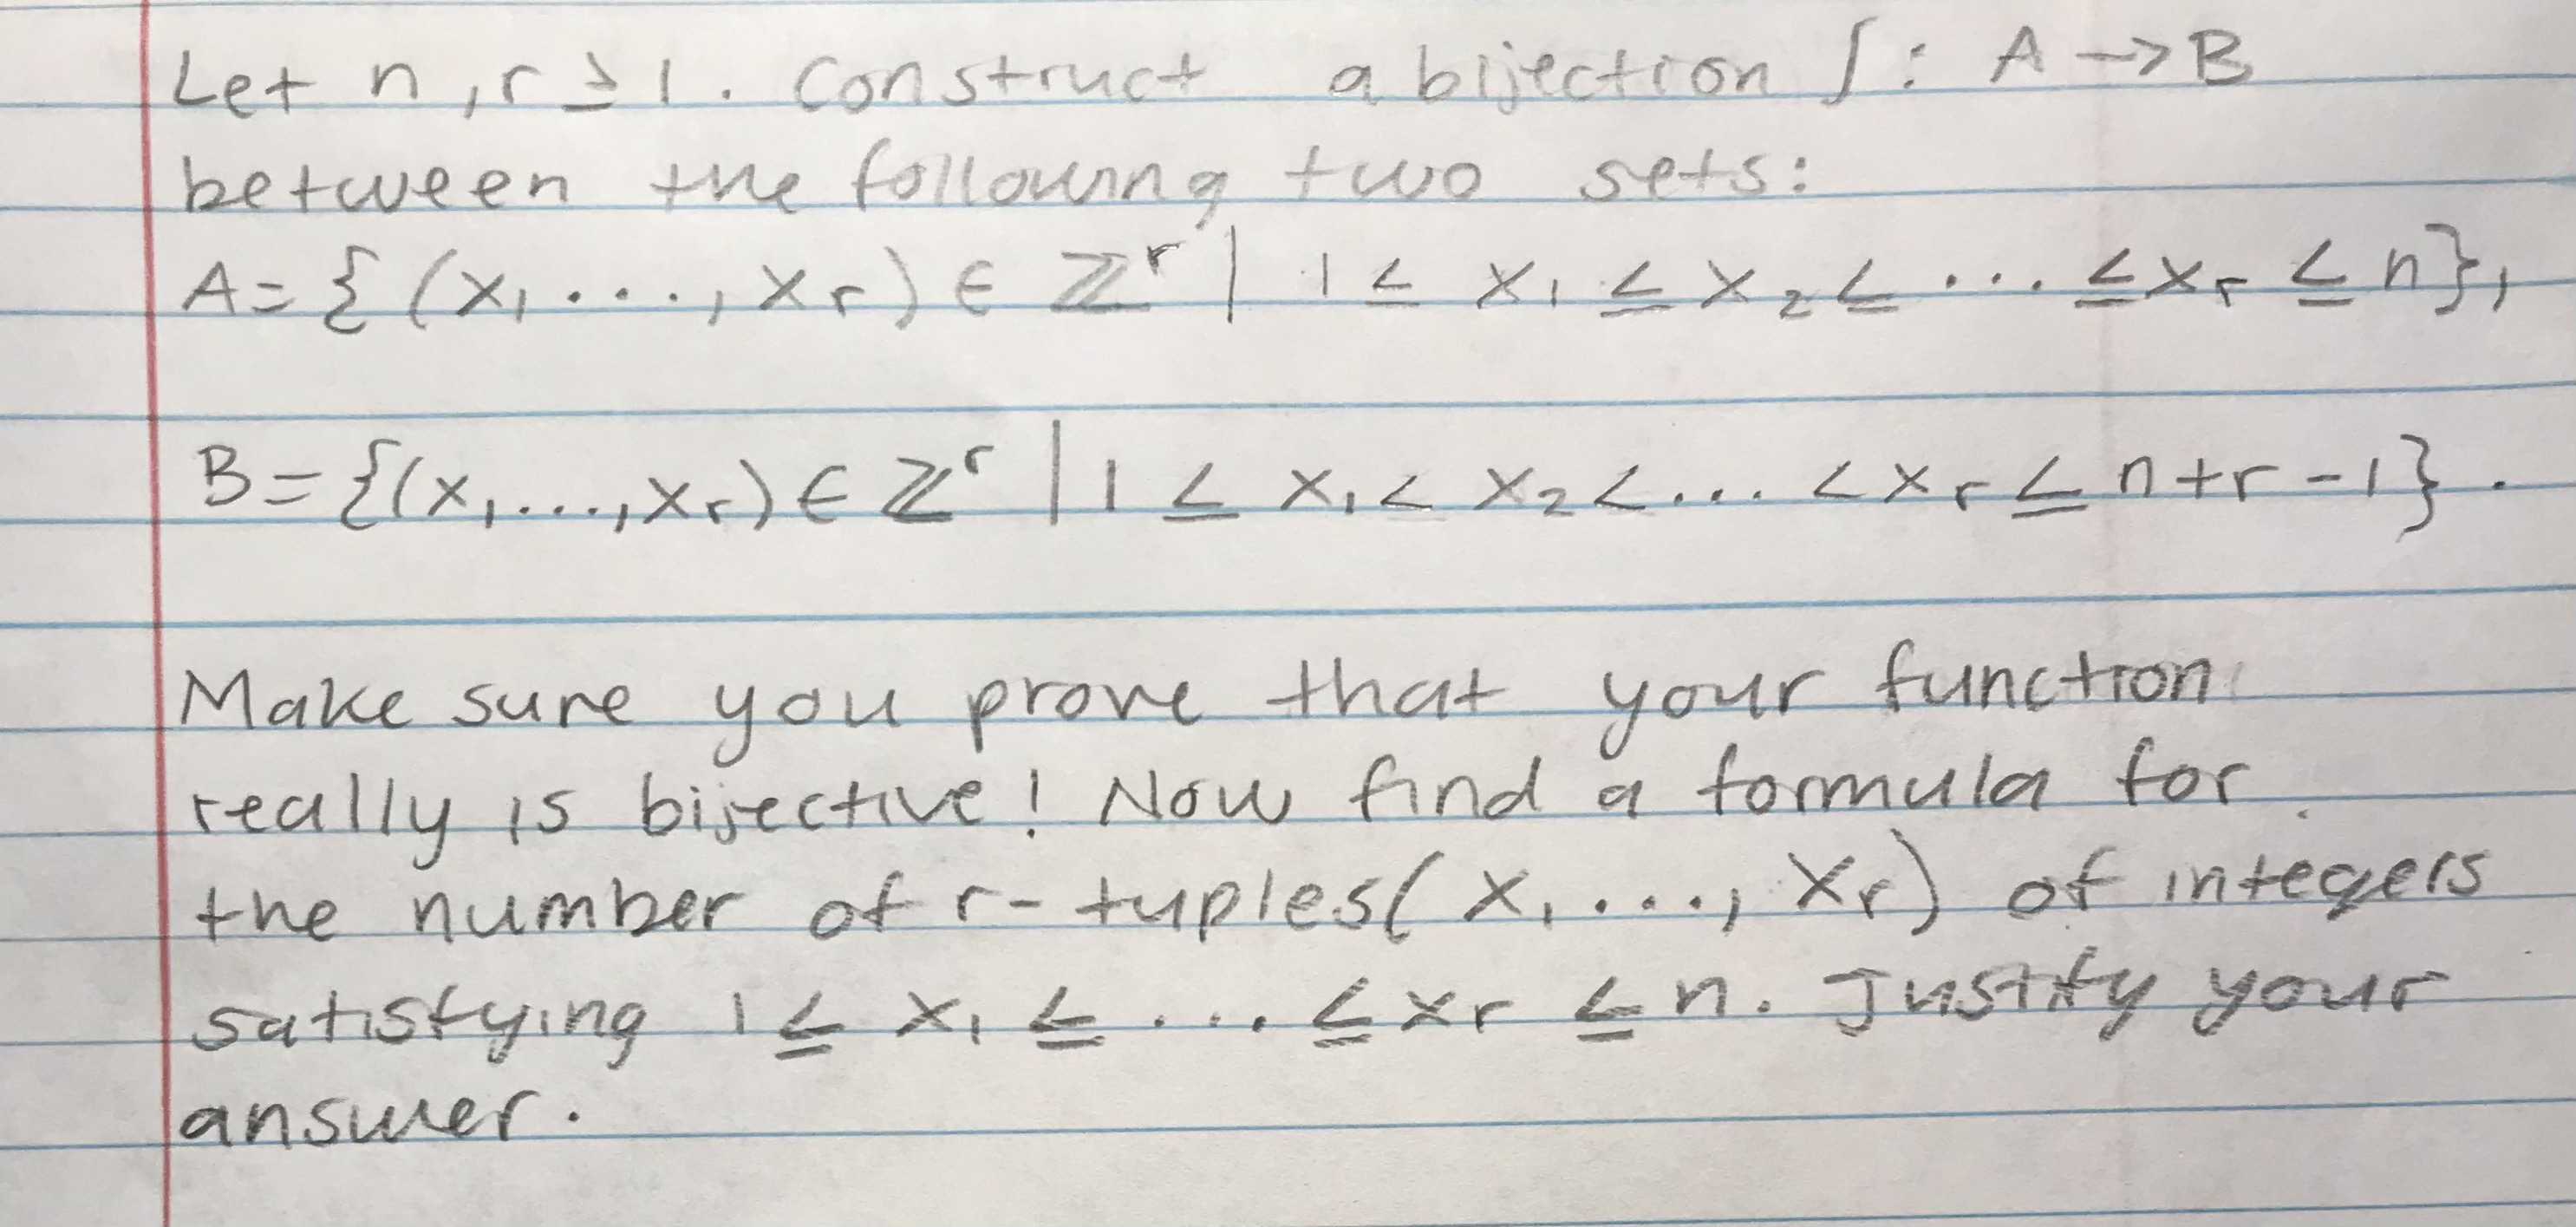 Let n, r ≥ 1. Construct a bijection ∫: A → B
between the following two sets:
A = { (x₁ ..., xᵣ) ∈ ℤʳ | 1 ≤ x₁ ≤ x₂ ≤ ... ≤ xᵣ ≤ n},
B = {(x₁,...,xᵣ) ∈ ℤʳ | 1 ≤ x₁ < x₂ < ... < xᵣ ≤ n+r-1}.
Make sure you prove that your function
really is bijective! Now find a formula for
the number of r-tuples (x₁ ..., xᵣ) of integers
satisfying 1 ≤ x₁ ≤ ... ≤ xᵣ ≤ n. Justify your
answer.